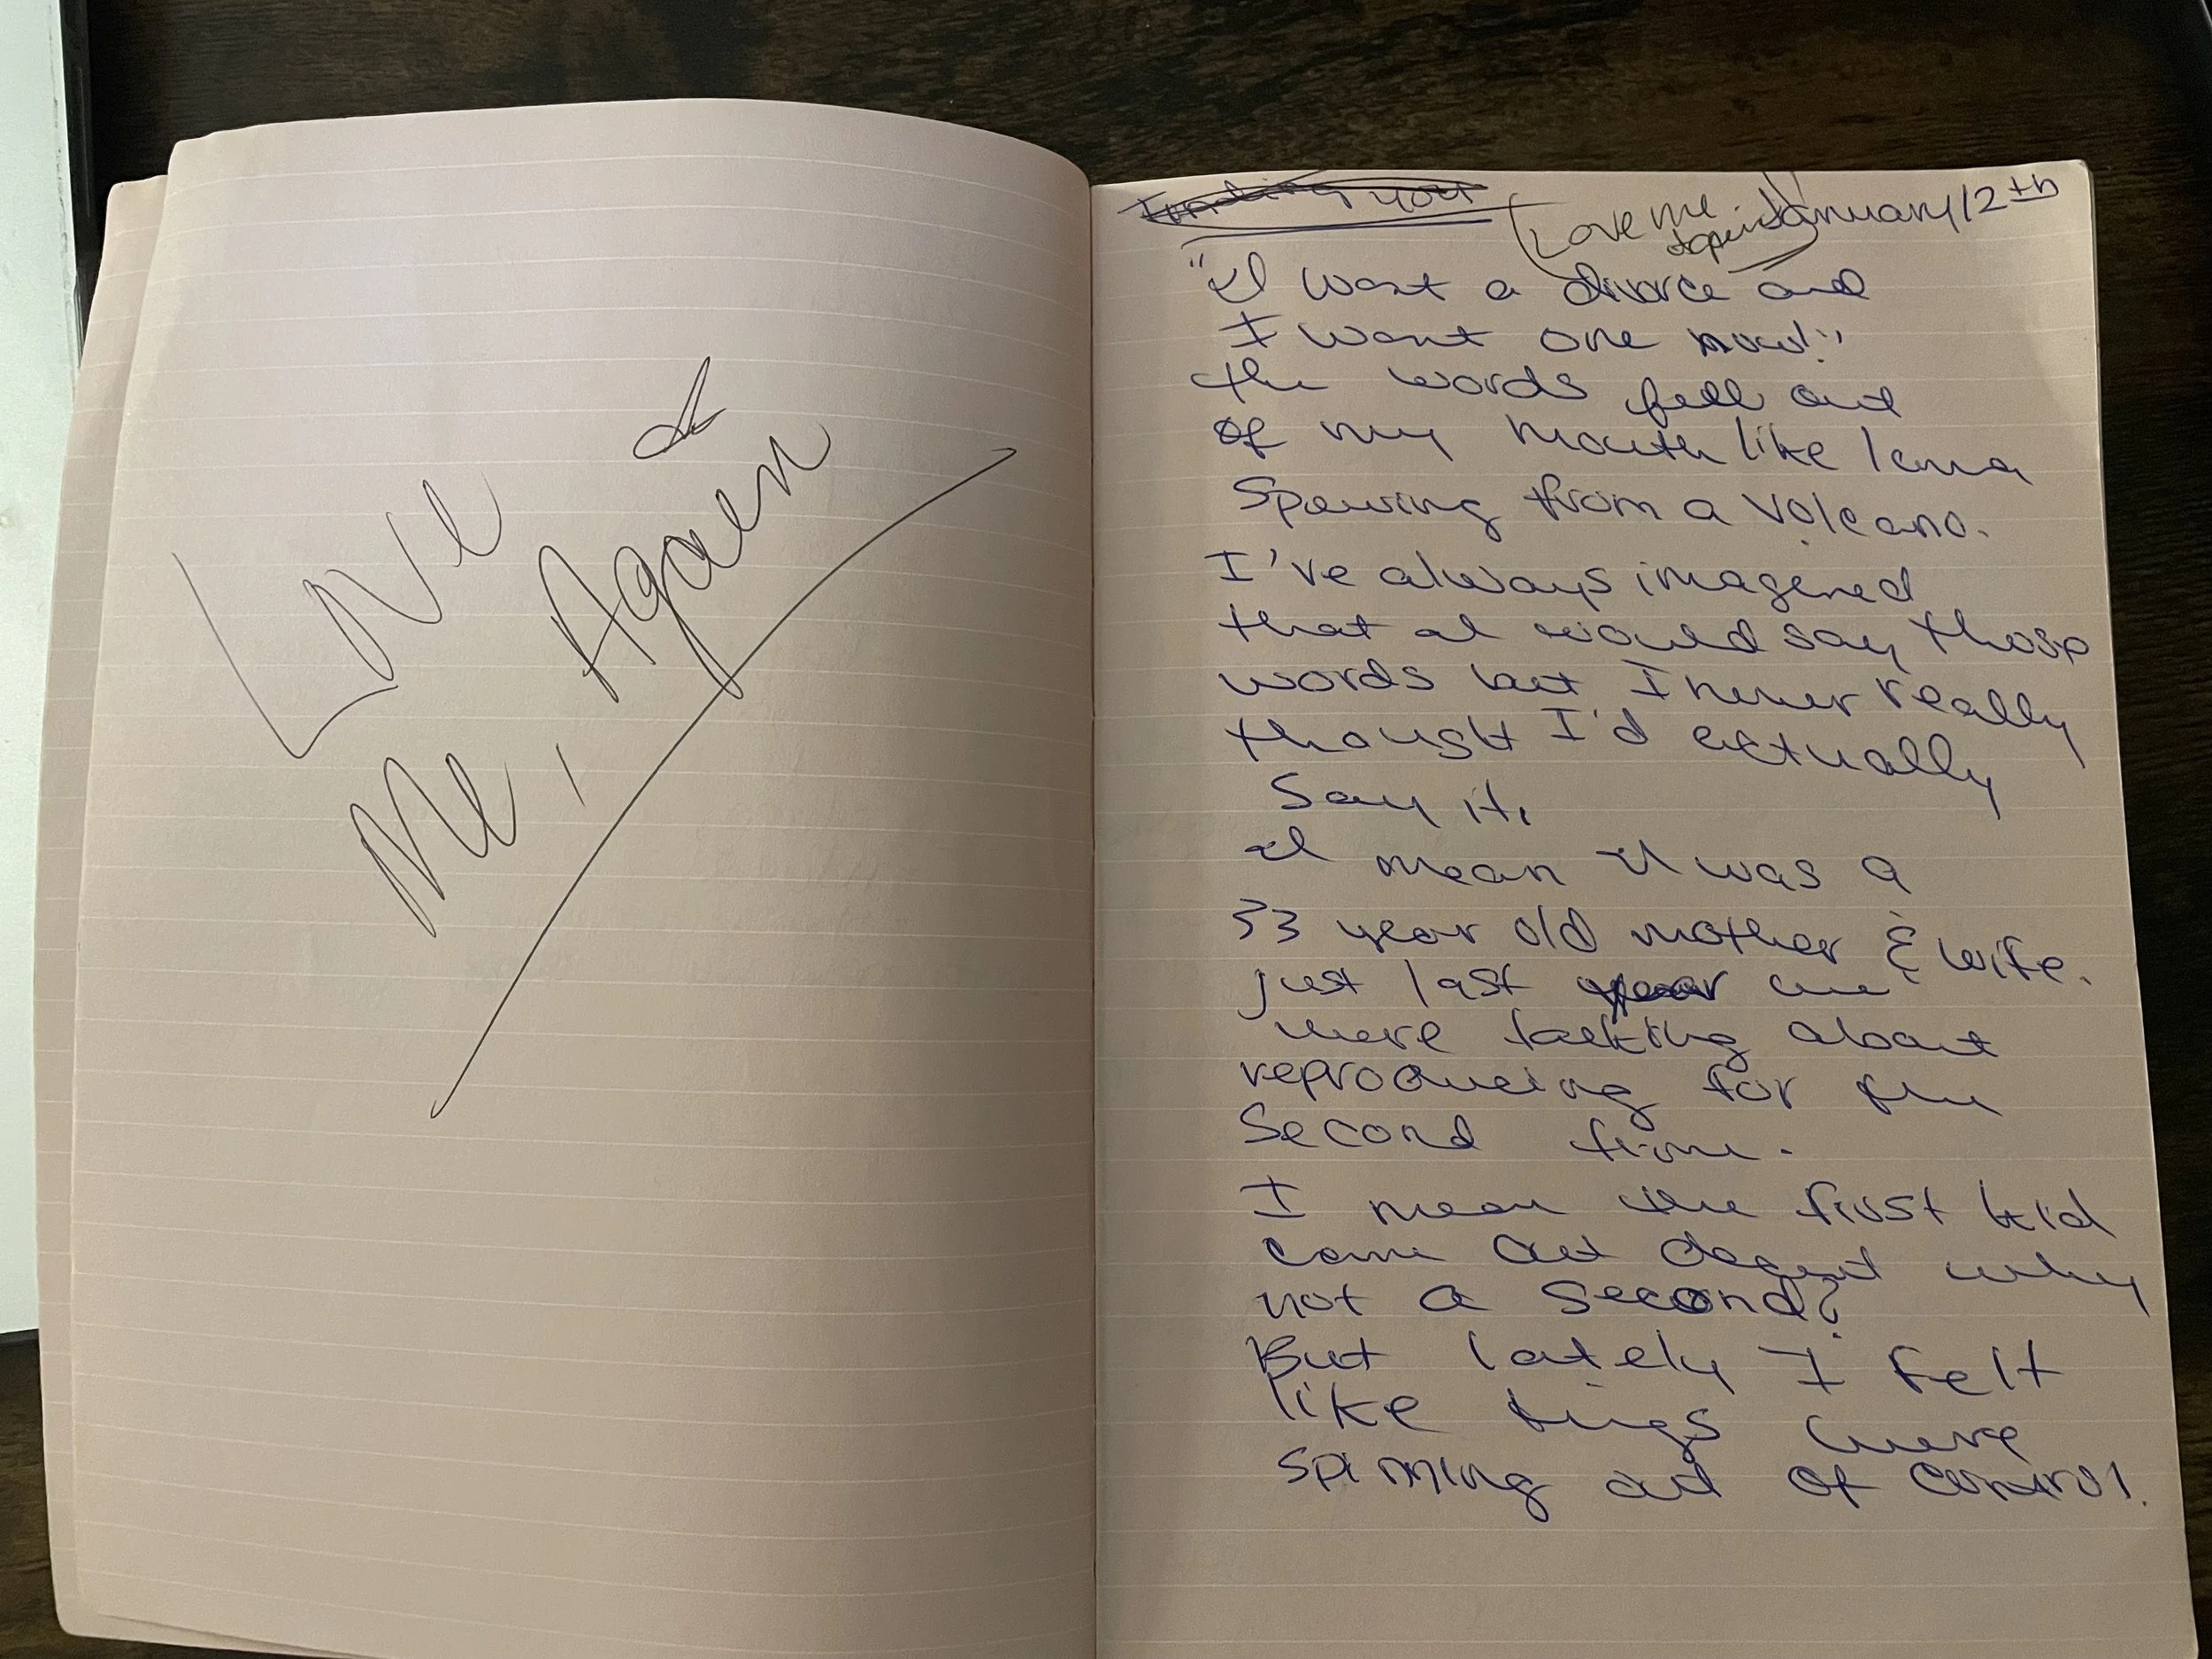 Love
Me, Again
Finding you
Love me again
January 12th
"I want a divorce and
I want one now!"
the words fell out
of my mouth like lava
Spewing from a Volcano.
I've always imagened
that I would say those
words but I never really
thought I'd actually
Say it.
I mean I was a
33 year old mother & wife.
just last year we
were talking about
reproducing for the
Second time.
I mean the first kid
came out decent why
not a second?
But lately I felt
like tings were
spinning out of control.